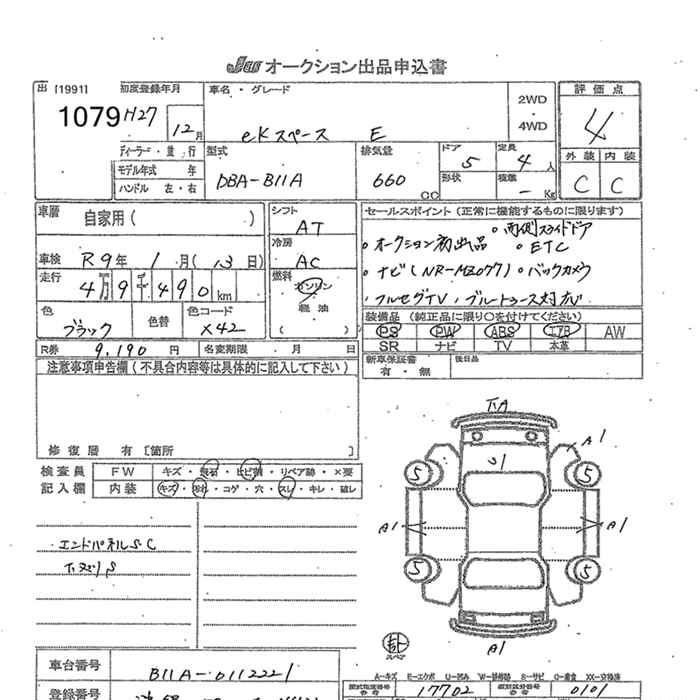 JU オークション出品申込書
出 [1991] 初度登録年月 車名・グレード 2WD・4WD 評価点
1079 H27 12月 eKスペース E 4
ディーラー・並行 型式 排気量 ドア 5 定員 4人 外装 内装
モデル年式 年 DBA-B11A 660 CC 形状 積載 - Kg C C
ハンドル 左・右
車歴 自家用( ) シフト AT セールスポイント(正常に機能するものに限ります)
冷房 AC ・オークション初出品 ・両側スライドドア
車検 R9年 1月(13日) ・ETC
走行 4万9千490km 燃料 ガソリン 軽油 ( ) ・ナビ(NR-MZ077)・バックカメラ
・フルセグTV・ブルートゥース対応
色 ブラック 色替 色コード X42 装備品(純正品に限り○を付けてください)
PS PW ABS エアB AW
SR ナビ TV 本革
R券 9,190円 名変期限 ・月 ・日 新車保証書 有・無 後日品
注意事項申告欄(不具合内容等は具体的に記入して下さい)
修復歴 有 [箇所 ]
検査員 FW キズ・飛石・ヒビ割・リペア跡・×要
記入欄 内装 キズ・汚れ・コゲ・穴・スレ・キレ・破レ
下A
A1
S1
5 5
A1 A1
エンドパネルSC
5 5
スペア
A1
A-キズ E-エクボ U-凹み W-補修跡 S-サビ C-腐食 XX-交換済
車台番号 B11A-0112221
型式指定番号 17702 類別区分番号 0101
登録番号